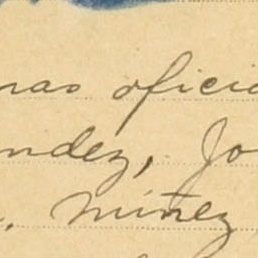 nas oficia
ndez, Jo
. Miñez